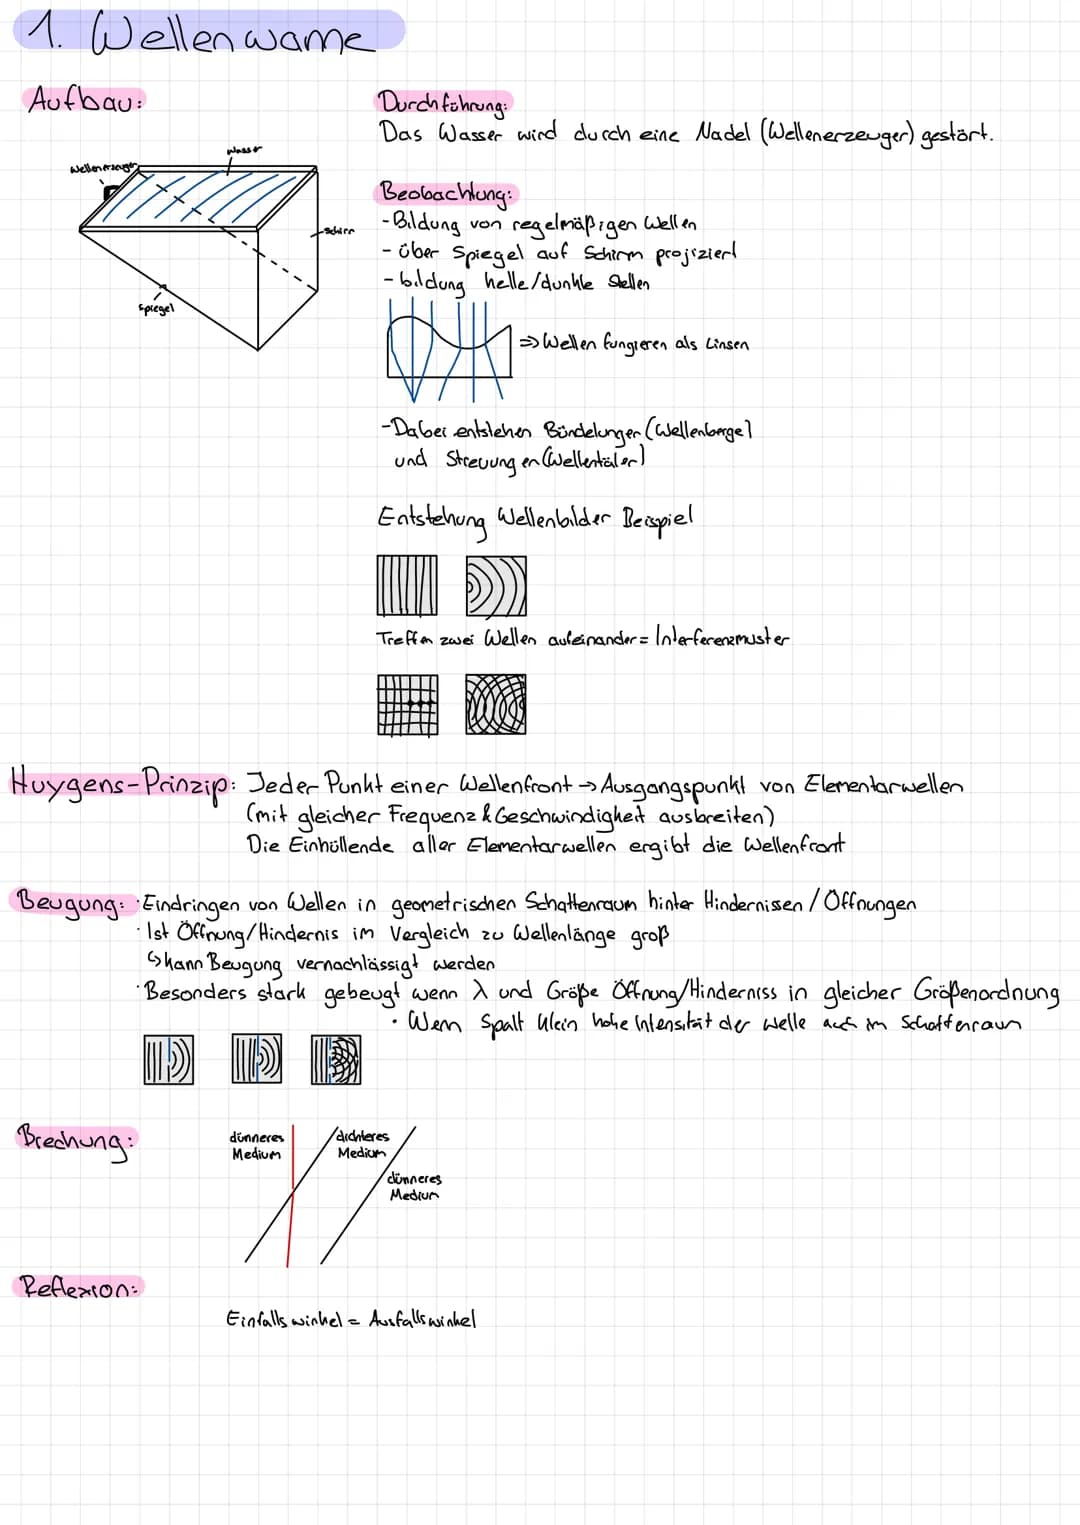 1. Wellenwanne
Aufbau:
Wellenerzeuger
Wasser
Schirm
Spiegel
Durchführung:
Das Wasser wird durch eine Nadel (Wellenerzeuger) gestört.
Beobachtung:
- Bildung von regelmäßigen Wellen
- über Spiegel auf Schirm projiziert
- bildung helle/dunkle Stellen
⇒ Wellen fungieren als Linsen
- Dabei entstehen Bündelungen (Wellenberge)
und Streuungen (Wellentäler)
Entstehung Wellenbilder Beispiel
Treffen zwei Wellen aufeinander = Interferenzmuster
Huygens-Prinzip: Jeder Punkt einer Wellenfront → Ausgangspunkt von Elementarwellen
(mit gleicher Frequenz & Geschwindigkeit ausbreiten)
Die Einhüllende aller Elementarwellen ergibt die Wellenfront
Beugung: · Eindringen von Wellen in geometrischen Schattenraum hinter Hindernissen / Öffnungen
· Ist Öffnung/Hindernis im Vergleich zu Wellenlänge groß
↳ kann Beugung vernachlässigt werden
· Besonders stark gebeugt wenn λ und Größe Öffnung/Hinderniss in gleicher Größenordnung
· Wenn Spalt klein hohe Intensität der Welle auch im Schattenraum
Brechung:
dünneres
Medium
dichteres
Medium
dünneres
Medium
Reflexion:
Einfallswinkel = Ausfallswinkel